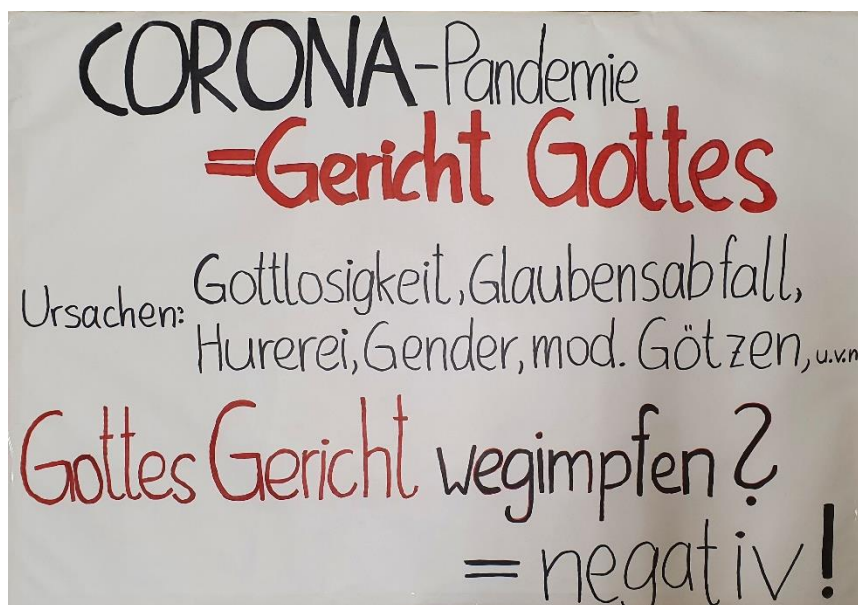 CORONA-Pandemie
=Gericht Gottes
Ursachen: Gottlosigkeit, Glaubensabfall,
Hurerei, Gender, mod. Götzen, u.v.m
Gottes Gericht wegimpfen?
= negativ!